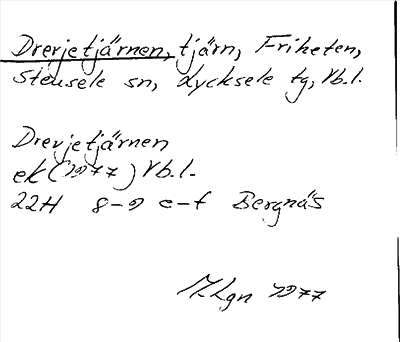 Drevjetjärnen, tjärn, Friheten,
Stensele sn, Lycksele tg, Vb.l.
Drevjetjärnen
ek (1977) Vb.l.
22H 8-9 e-f Bergnäs
1977